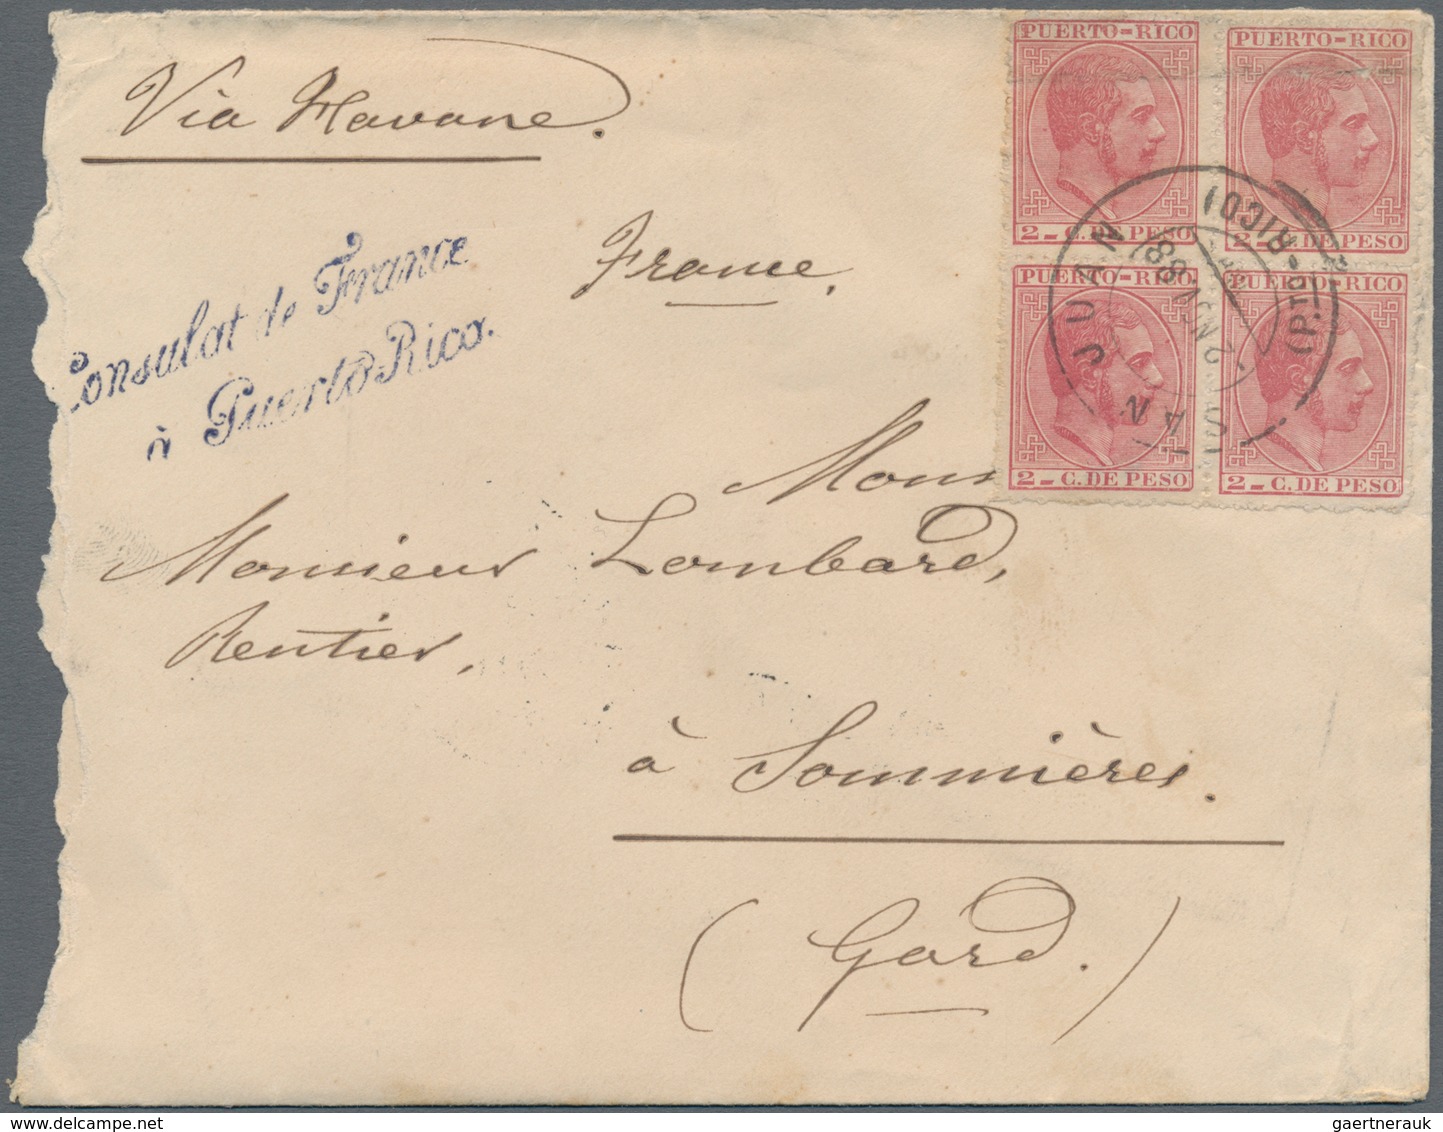 Via Havane.
France.
Consulat de France
à Puerto Rico.
PUERTO-RICO
2 - C. DE PESO
PUERTO-RICO
2 - C. DE PESO
PUERTO-RICO
2 - C. DE PESO
PUERTO-RICO
2 - C. DE PESO
SAN JUAN
(P.TO-RICO)
88
Mons
Monsieur Lombard,
Rentier,
à Sommières.
(Gard.)
gaertnerauk